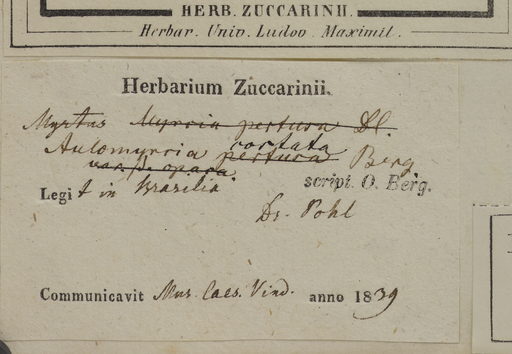 HERB. ZUCCARINII.
Herbar. Univ. Ludov. Maximil.
Herbarium Zuccarinii.
Myrtus Myrcia pertusa DC.
costata
Aulomyrcia pertusa Berg
var. β. opaca.
script. O. Berg.
Legit in Brasilia
Dr. Pohl
Communicavit Mus. Caes. Vind. anno 1839